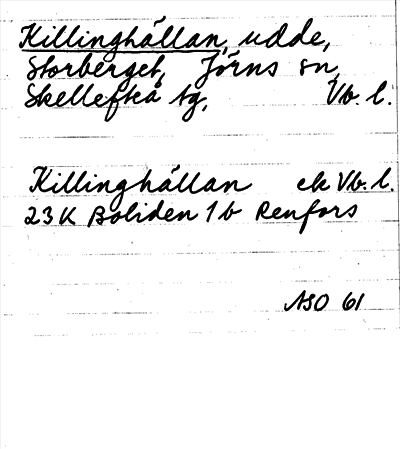 Killinghällan, udde,
Storberget, Jörns sn,
Skellefteå tg, Vb. l.
Killinghällan ek Vb. l.
23K Boliden 1b Renfors
ASO 61